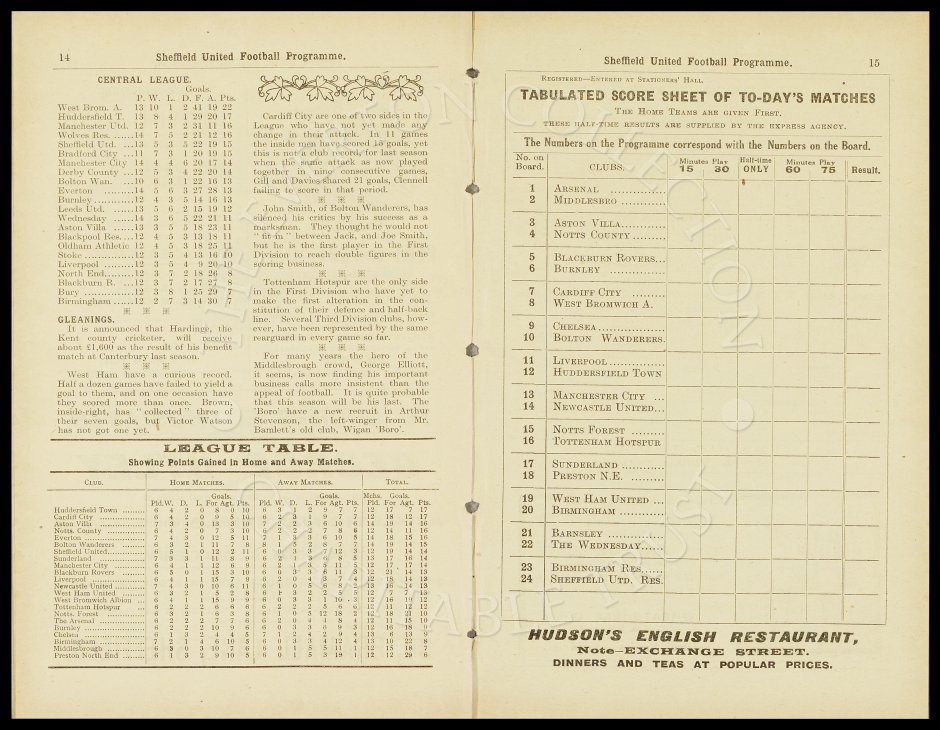 14 Sheffield United Football Programme.
CENTRAL LEAGUE.
Goals.
P. W. L. D. F. A. Pts.
West Brom. A. 13 10 1 2 41 19 22
Huddersfield T. 13 8 4 1 29 20 17
Manchester Utd. 12 7 3 2 31 11 16
Wolves Res. ....14 7 5 2 21 12 16
Sheffield Utd. ...13 5 3 5 22 19 15
Bradford City ...11 7 3 1 20 19 15
Manchester City 14 4 4 6 20 17 14
Derby County ...12 5 3 4 22 20 14
Bolton Wan. ...10 6 3 1 22 16 13
Everton .........14 5 6 3 27 28 13
Burnley............12 4 3 5 14 16 13
Leeds Utd. ......13 5 6 2 15 19 12
Wednesday ......14 3 6 5 22 21 11
Aston Villa ......13 3 5 5 18 23 11
Blackpool Res....12 4 5 3 13 18 11
Oldham Athletic 12 4 5 3 18 25 11
Stoke...............12 3 5 4 13 16 10
Liverpool .........12 3 5 4 9 20 10
North End.........12 3 7 2 18 26 8
Blackburn R. ...12 3 7 2 17 27 8
Bury ...............12 3 8 1 25 29 7
Birmingham ......12 2 7 3 14 30 7
GLEANINGS.
It is announced that Hardinge, the
Kent county cricketer, will receive
about £1,600 as the result of his benefit
match at Canterbury last season.
West Ham have a curious record.
Half a dozen games have failed to yield a
goal to them, and on one occasion have
they scored more than once. Brown,
inside-right, has "collected" three of
their seven goals, but Victor Watson
has not got one yet.
Cardiff City are one of two sides in the
League who have not yet made any
change in their attack. In 11 games
the inside men have scored 15 goals, yet
this is not a club record, for last season
when the same attack as now played
together in nine consecutive games,
Gill and Davies shared 21 goals, Clennell
failing to score in that period.
John Smith, of Bolton Wanderers, has
silenced his critics by his success as a
marksman. They thought he would not
"fit in" between Jack, and Joe Smith,
but he is the first player in the First
Division to reach double figures in the
scoring business.
Tottenham Hotspur are the only side
in the First Division who have yet to
make the first alteration in the con-
stitution of their defence and half-back
line. Several Third Division clubs, how-
ever, have been represented by the same
rearguard in every game so far.
For many years the hero of the
Middlesbrough crowd, George Elliott,
it seems, is now finding his important
business calls more insistent than the
appeal of football. It is quite probable
that this season will be his last. The
'Boro' have a new recruit in Arthur
Stevenson, the left-winger from Mr.
Bamlett's old club, Wigan 'Boro'.
LEAGUE TABLE.
Showing Points Gained in Home and Away Matches.
CLUB. HOME MATCHES. AWAY MATCHES. TOTAL.
Goals. Goals. Mchs. Goals.
Pld. W. D. L. For Agt. Pts. Pld. W. D. L. For Agt. Pts. Pld. For Agt. Pts.
Huddersfield Town ......... 6 4 2 0 8 0 10 6 3 1 2 9 7 7 12 17 7 17
Cardiff City 6 4 2 0 9 5 10 6 2 3 1 9 7 7 12 18 12 17
Aston Villa 7 3 4 0 13 3 10 7 2 2 3 6 10 6 14 19 14 16
Notts. County 6 4 2 0 7 3 10 6 2 2 2 7 8 6 12 14 11 16
Everton 7 4 3 0 12 5 11 7 1 3 3 6 10 5 14 18 15 16
Bolton Wanderers 6 3 2 1 11 7 8 8 1 5 2 8 7 7 14 19 14 15
Sheffield United 6 5 1 0 12 2 11 6 0 3 3 7 12 3 12 19 14 14
Sunderland 7 3 3 1 11 8 9
Manchester City 6 4 1 1 12 6 9
Blackburn Rovers 6 5 0 1 15 3 10
Liverpool 6 4 1 1 15 7 9
Newcastle United 7 4 3 0 10 6 11
West Ham United 6 3 2 1 5 2 8
West Bromwich Albion 6 4 1 1 15 9 9
Tottenham Hotspur 6 2 2 2 6 6 6
Notts. Forest 6 3 2 1 6 3 8
The Arsenal 6 2 2 2 7 7 6
Burnley 6 2 2 2 10 9 6
Chelsea 6 1 3 2 4 4 5
Birmingham 7 2 1 4 6 10 5
Middlesbrough 6 3 0 3 10 7 6
Preston North End 6 1 3 2 9 10 5
Sheffield United Football Programme. 15
REGISTERED—ENTERED AT STATIONERS' HALL.
TABULATED SCORE SHEET OF TO-DAY'S MATCHES
THE HOME TEAMS ARE GIVEN FIRST.
THESE HALF-TIME RESULTS ARE SUPPLIED BY THE EXPRESS AGENCY.
The Numbers on the Programme correspond with the Numbers on the Board.
No. on Board. CLUBS. Minutes Play 15 30 Half-time ONLY Minutes Play 60 75 Result.
1 ARSENAL ............
2 MIDDLESBRO ............
3 ASTON VILLA............
4 NOTTS COUNTY .........
5 BLACKBURN ROVERS...
6 BURNLEY ............
7 CARDIFF CITY .........
8 WEST BROMWICH A.
9 CHELSEA..................
10 BOLTON WANDERERS.
11 LIVERPOOL...............
12 HUDDERSFIELD TOWN
13 MANCHESTER CITY ...
14 NEWCASTLE UNITED...
15 NOTTS FOREST .........
16 TOTTENHAM HOTSPUR
17 SUNDERLAND ............
18 PRESTON N.E. .........
19 WEST HAM UNITED ...
20 BIRMINGHAM ............
21 BARNSLEY ...............
22 THE WEDNESDAY......
23 BIRMINGHAM RES......
24 SHEFFIELD UTD. RES.
HUDSON'S ENGLISH RESTAURANT,
Note—EXCHANGE STREET.
DINNERS AND TEAS AT POPULAR PRICES.